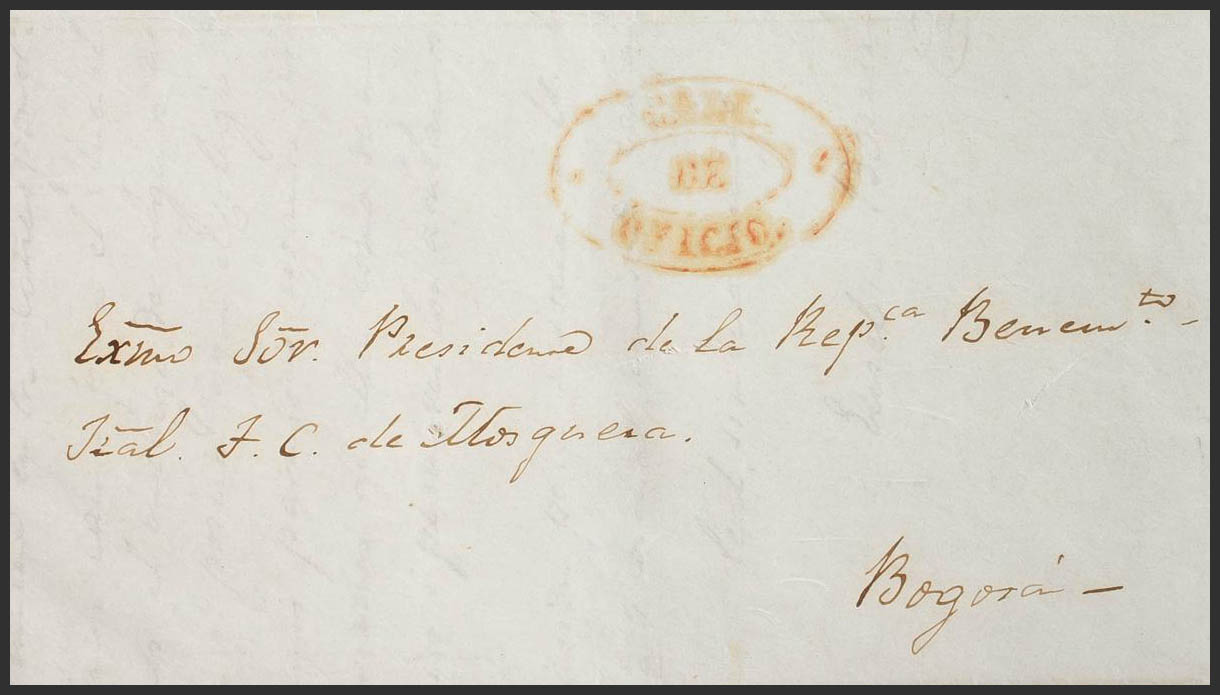 CALI.
DE
OFICIO.
Exmo Sōr. Presidente de la Repᶜᵃ. Benemᵗᵒ. -
Jral. T. C. de Mosquera.
Bogotá —